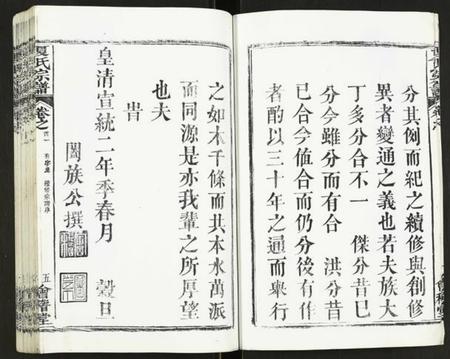 分其例而紀之續修與創修
異者變通之義也若夫族大
丁多分合不一 傑分昔已
分今雖分而有合 洪分昔
已合今值合而仍分後有作
者酌以三十年之通而舉行
之如木千條而共本水萬派
而同源是亦我輩之所厚望
也夫
旹
皇清宣統二年季春月 穀旦
闔族公撰
氏宗譜
卷之
五
會稽堂